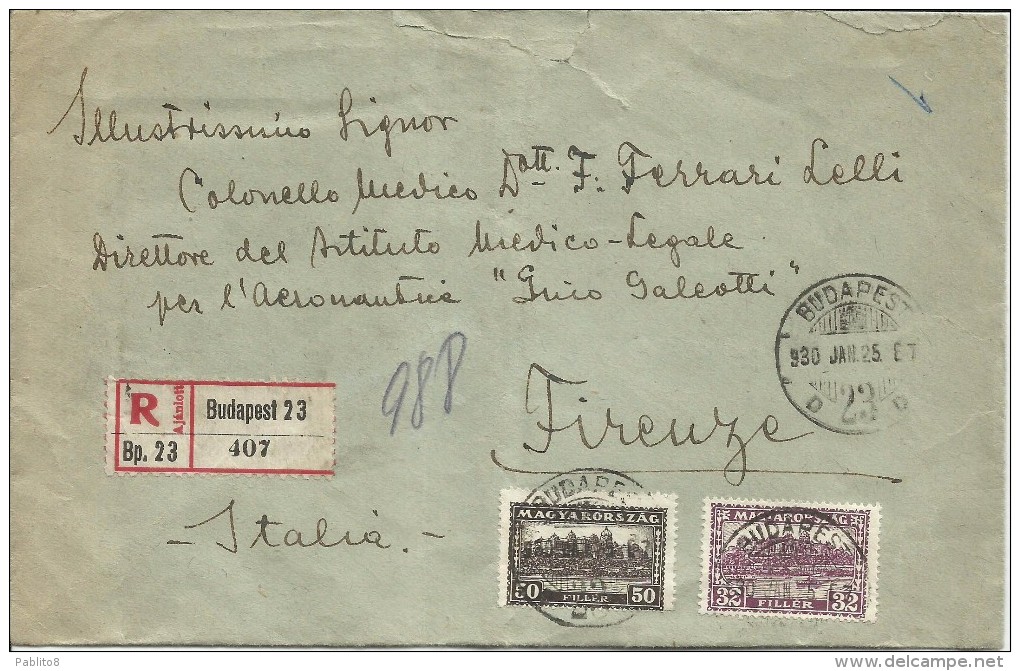 Illustrissimo Signor
Colonello Medico Dott. F. Ferrari Lelli
Direttore del Istituto Medico-Legale
per l'Aeronautica "Gino Galeotti"
Firenze
- Italia. -
988
R
Ajánlott
Budapest 23
Bp. 23
407
BUDAPEST
930 JAN. 25.
23
BUDAPEST
MAGYARORSZÁG
50 50
FILLÉR
MAGYARORSZÁG
BUDAPEST
32 32
FILLÉR
Pablito8
http://www.delcampe.net